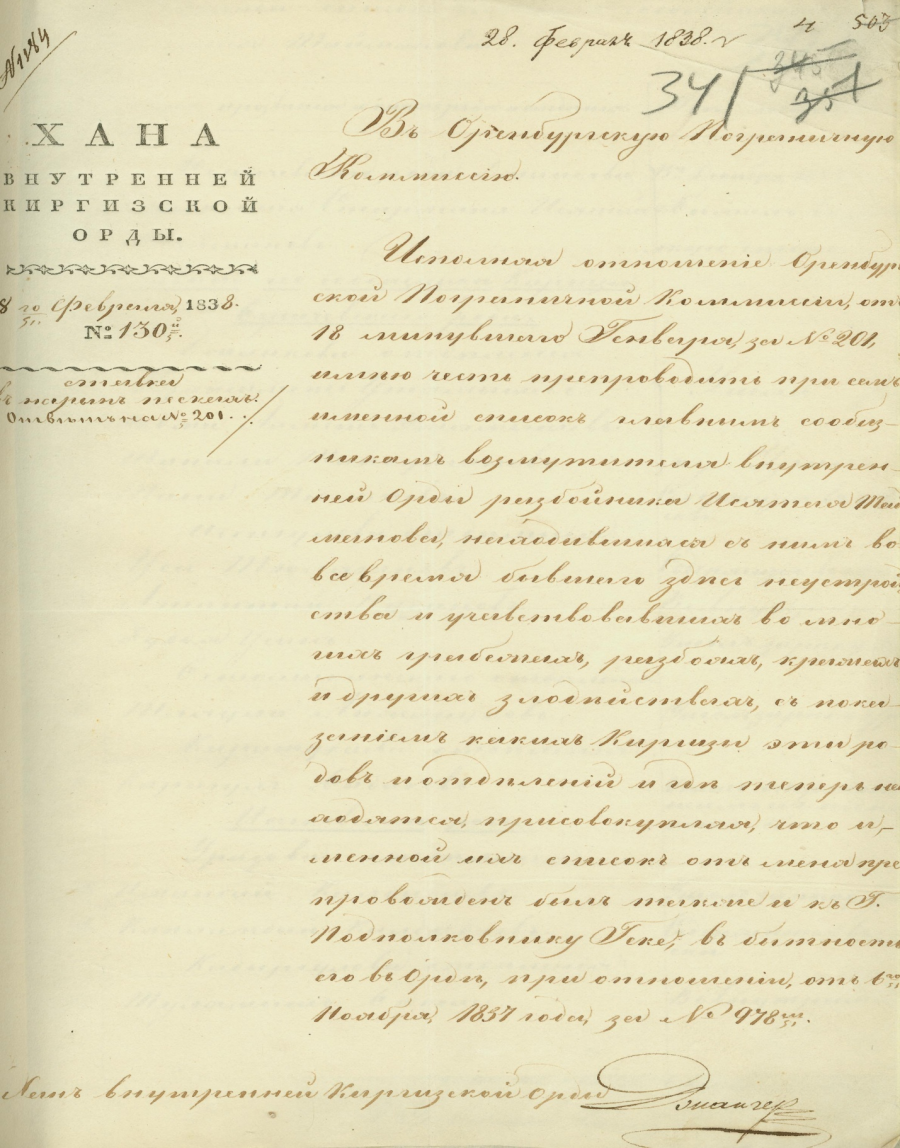 N 1184
28. Февраля 1838. г.
4 503
341 345 351
ХАНА
ВНУТРЕННЕЙ
КИРГИЗСКОЙ
ОРДЫ.
8 го Февраля, 1838.
№ 130й.
ставка
въ нарынъ пескахъ.
Отвѣтъ на № 201.
Въ Оренбургскую Пограничную
Коммиссію.
Исполняя отношеніе Оренбург-
ской Пограничной Коммиссіи, отъ
18 минувшаго Генваря, за № 201,
имѣю честь препроводить при семъ
именной списокъ главнымъ сообщ-
никамъ возмутителя внутрен-
ней Орды разбойника Исятая Тай
манова, находившимся съ нимъ во
все время бывшаго здѣсь неустрой
ства и участвовавшихъ во мно-
гихъ грабежахъ, разбояхъ, кражахъ
и другихъ злодѣйствахъ, съ пока-
заніемъ какихъ Киргизы эти ро-
довъ и отдѣленій и гдѣ теперь на
ходятся, присовокупляя, что и,-
менной ихъ списокъ отъ меня пре
провожденъ былъ также и къ Г.
Подполковнику Геке, въ бытность
его въ Ордѣ, при отношеніи, отъ 6го
Ноября, 1837 года, за № 978м.
Ханъ внутренней Киргизской Орды Джангер